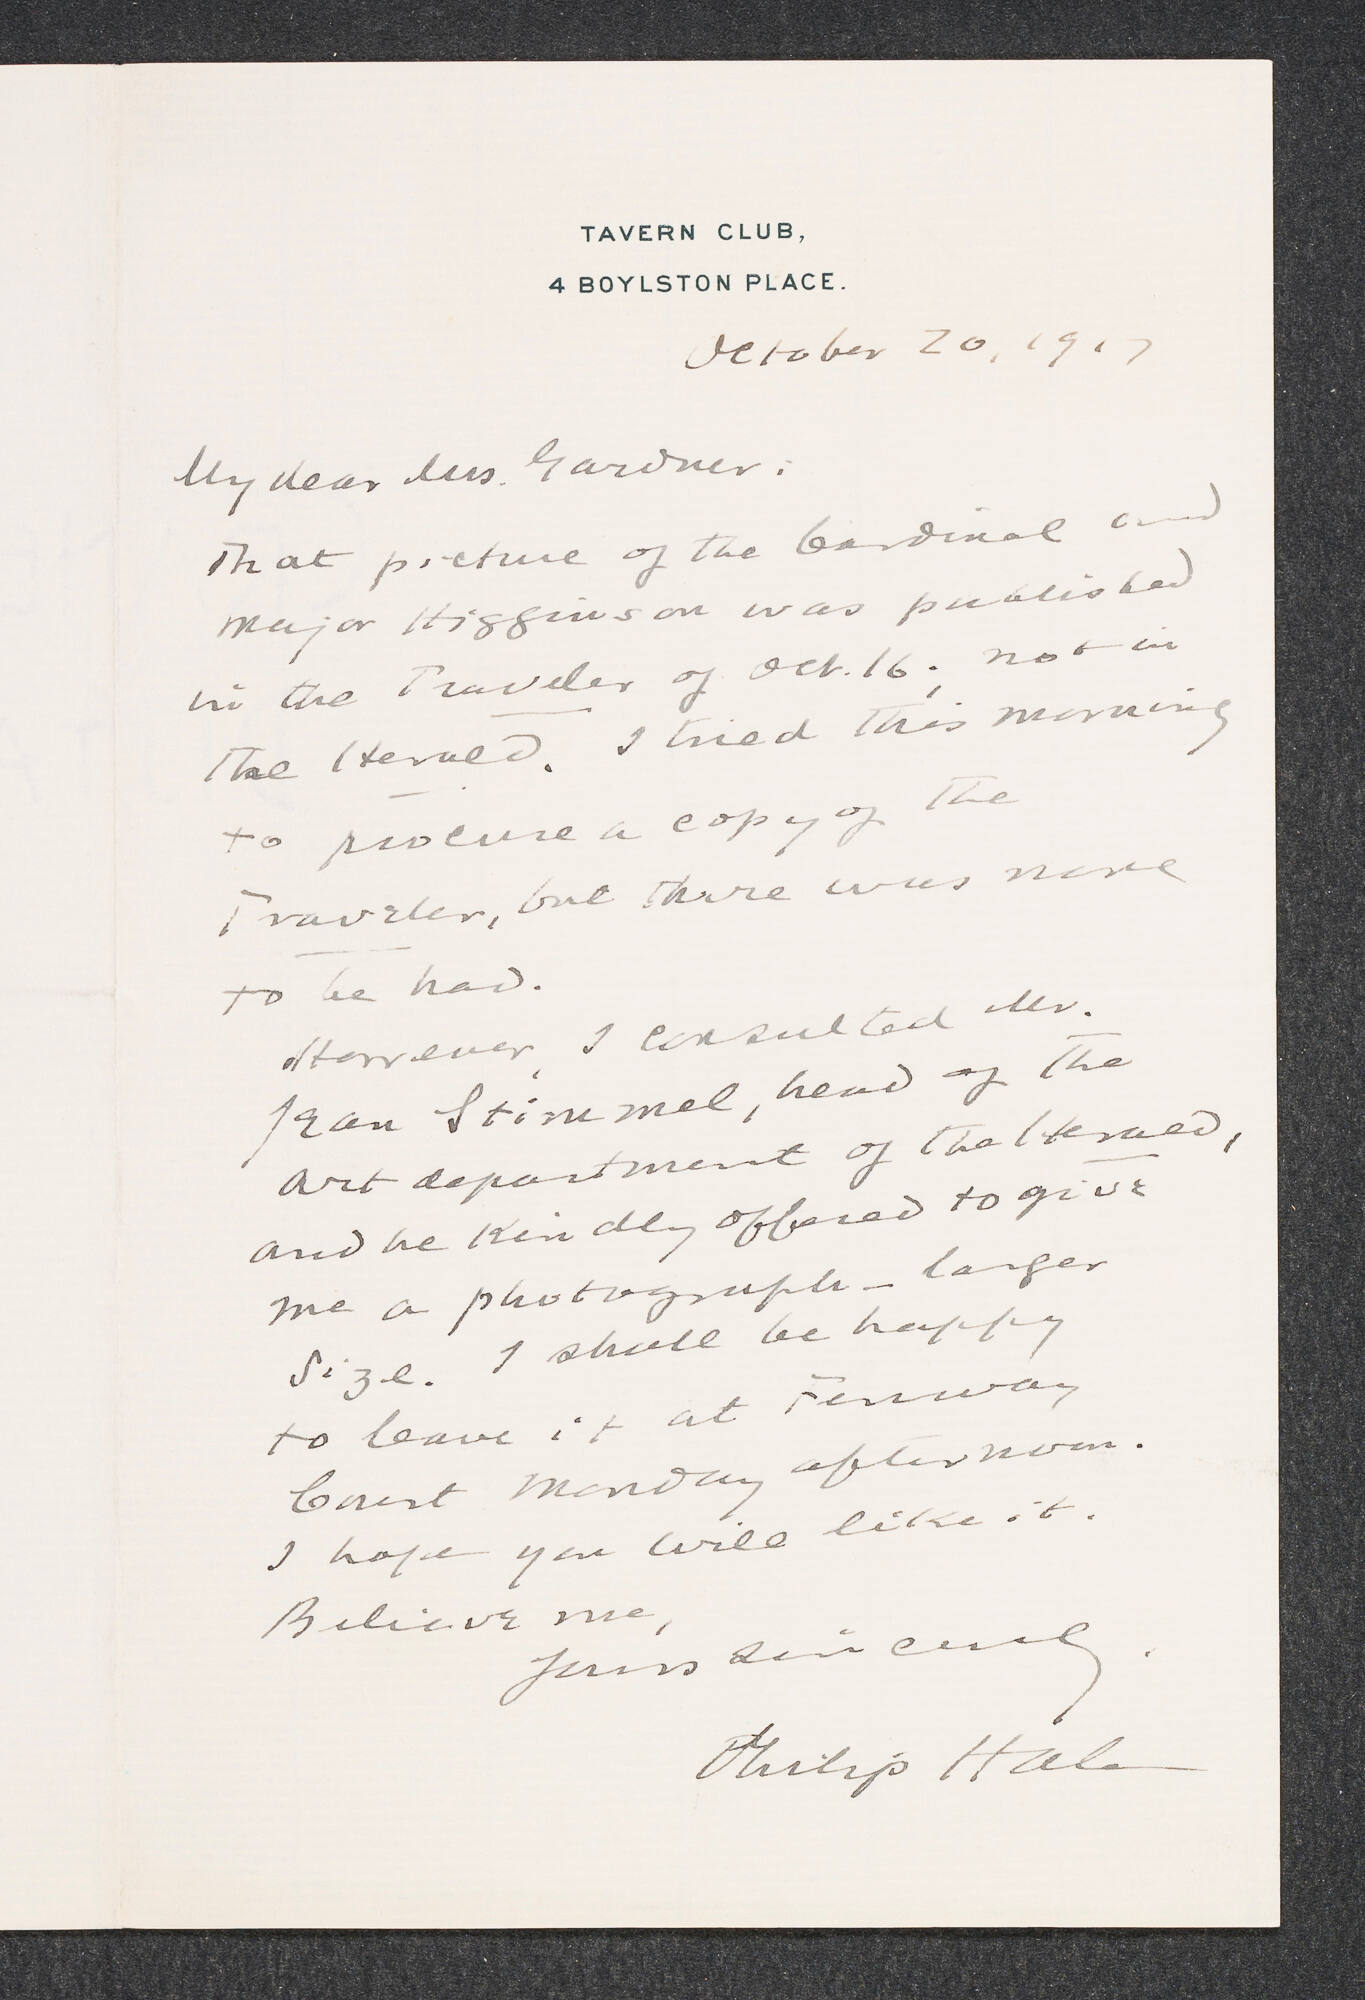 TAVERN CLUB,
4 BOYLSTON PLACE.
October 20, 1917
My dear Mrs. Gardner:
That picture of the Cardinal and
Major Higginson was published
in the Traveler of Oct. 16; not in
the Herald. I tried this morning
to procure a copy of the
Traveler, but there was none
to be had.
However, I consulted Mr.
Jean Stimmel, head of the
art department of the Herald,
and he kindly offered to give
me a photograph – larger
size. I shall be happy
to leave it at Fenway
Court Monday afternoon.
I hope you will like it.
Believe me,
Yours sincerely.
Philip Hale